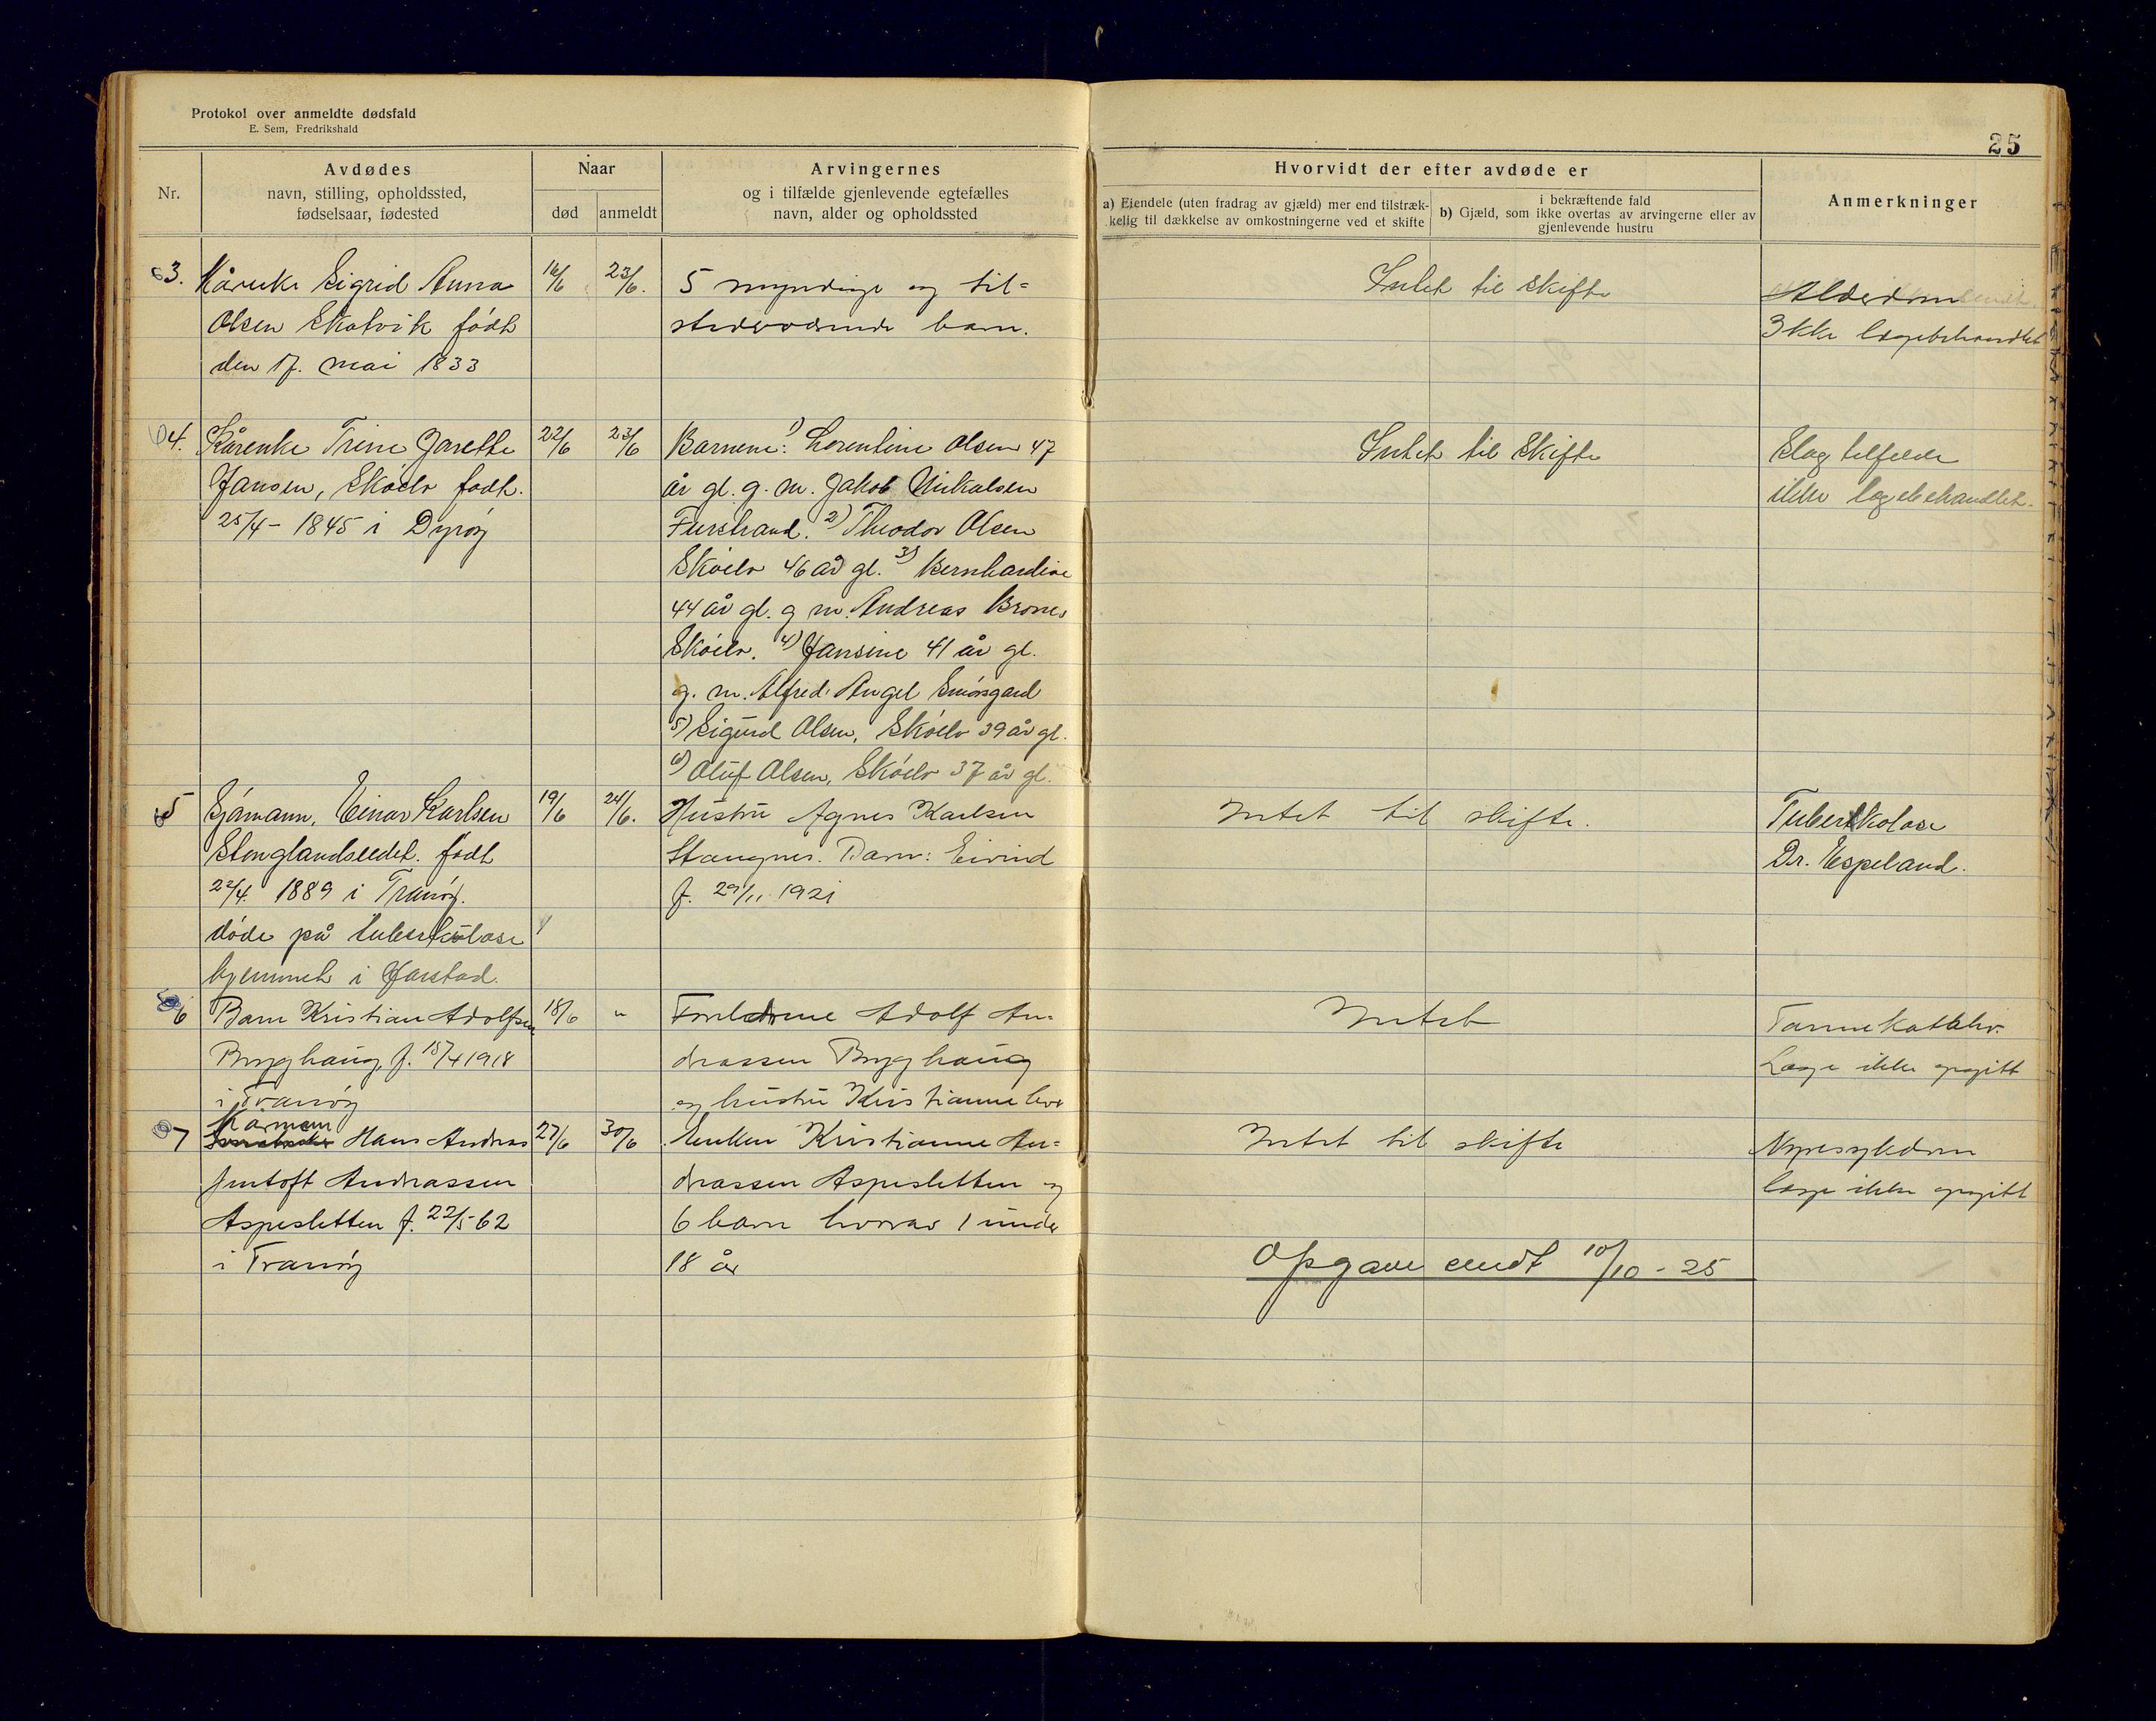 Protokol over anmeldte dødsfald
E. Sem, Fredrikshald
25
Nr.
Avdødes
navn, stilling, opholdssted,
fødselsaar, fødested
Naar
død
anmeldt
Arvingernes
og i tilfælde gjenlevende egtefælles
navn, alder og opholdssted
Hvorvidt der efter avdøde er
a) Eiendele (uten fradrag av gjæld) mer end tilstræk-
kelig til dækkelse av omkostningerne ved et skifte
i bekræftende fald
b) Gjæld, som ikke overtas av arvingerne eller av
gjenlevende hustru
Anmerkninger
3. Kårenke Sigrid Anna
Olsen Skatvik født
den 17. mai 1833
16/6
23/6.
5 myndige og til=
stedeværende barn.
Intet til skifte
Alderdom
Ikke lægebehandlet
4. Kårenke Trine Jarette
Jansen, Skóelv født.
25/4 - 1845 i Dyröy
22/6
23/6
Barnene: 1) Lorentine Olsen 47
år gl. g. m. Jakob Nikolsen
Furstrand. 2) Theodor Olsen
Skóelv 46 år gl. 3) Bernhardine
44 år gl. g m. Andreas Brones
Skóelv. 4) Jansine 41 år gl.
g. m. Alfred Angel Smórsgard
5) Sigurd Olsen, Skóelv 39 år gl.
6) Oluf Olsen, Skóelv 37 år gl.
Intet til skifte
Slagtilfelde
ikke lægebehandlet.
5 Sjómann, Einar Karlsen
Stonglandseidet. født
22/4. 1889 i Tranöy.
döde på tuberkulose
hjemmet i Harstad.
19/6
24/6.
Hustru Agnes Karlsen
Stangnes. Barn: Eivind
f. 29/11 1921
Intet til skifte.
Tuberkolose
Dr. Espeland.
6 Barn Kristian Adolfsen
Bygghaug, f. 15/4 1918
i Tranöy
18/6
"
Foreldrene Adolf An=
drassen Bygghaug
og hustru Kristianne hvv
Intet
Tarmekatahr.
Læge ikke opgitt
7 Kårmann
Hans Andreas
Jentoft Andrassen
Aspesletten f. 22/5-62
i Tranöy
27/6
30/6
Enken Kristianne An=
drassen Aspesletten og
6 barn hvorav 1 under
18 år
Intet til skifte
Nyresykdom
læge ikke opgitt
Opgave sendt 10/10 - 25